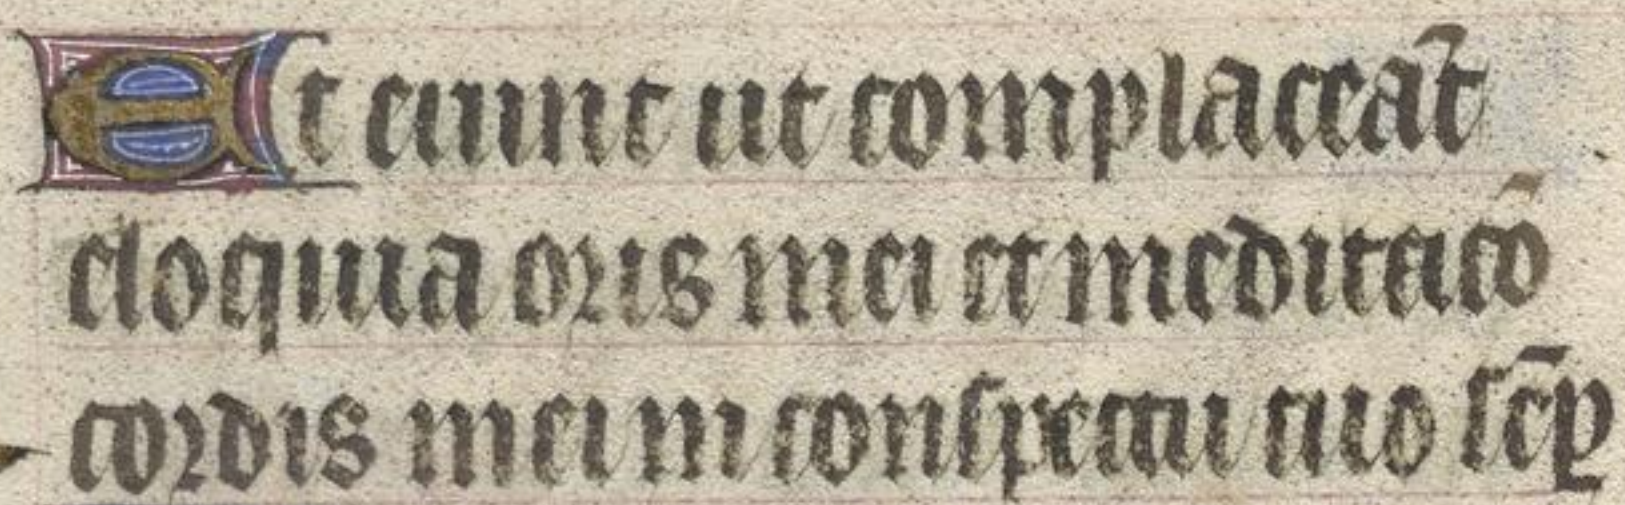 Et erunt ut complaceāt
eloquia oris mei et meditacō
cordis mei in conspectu tuo scēp